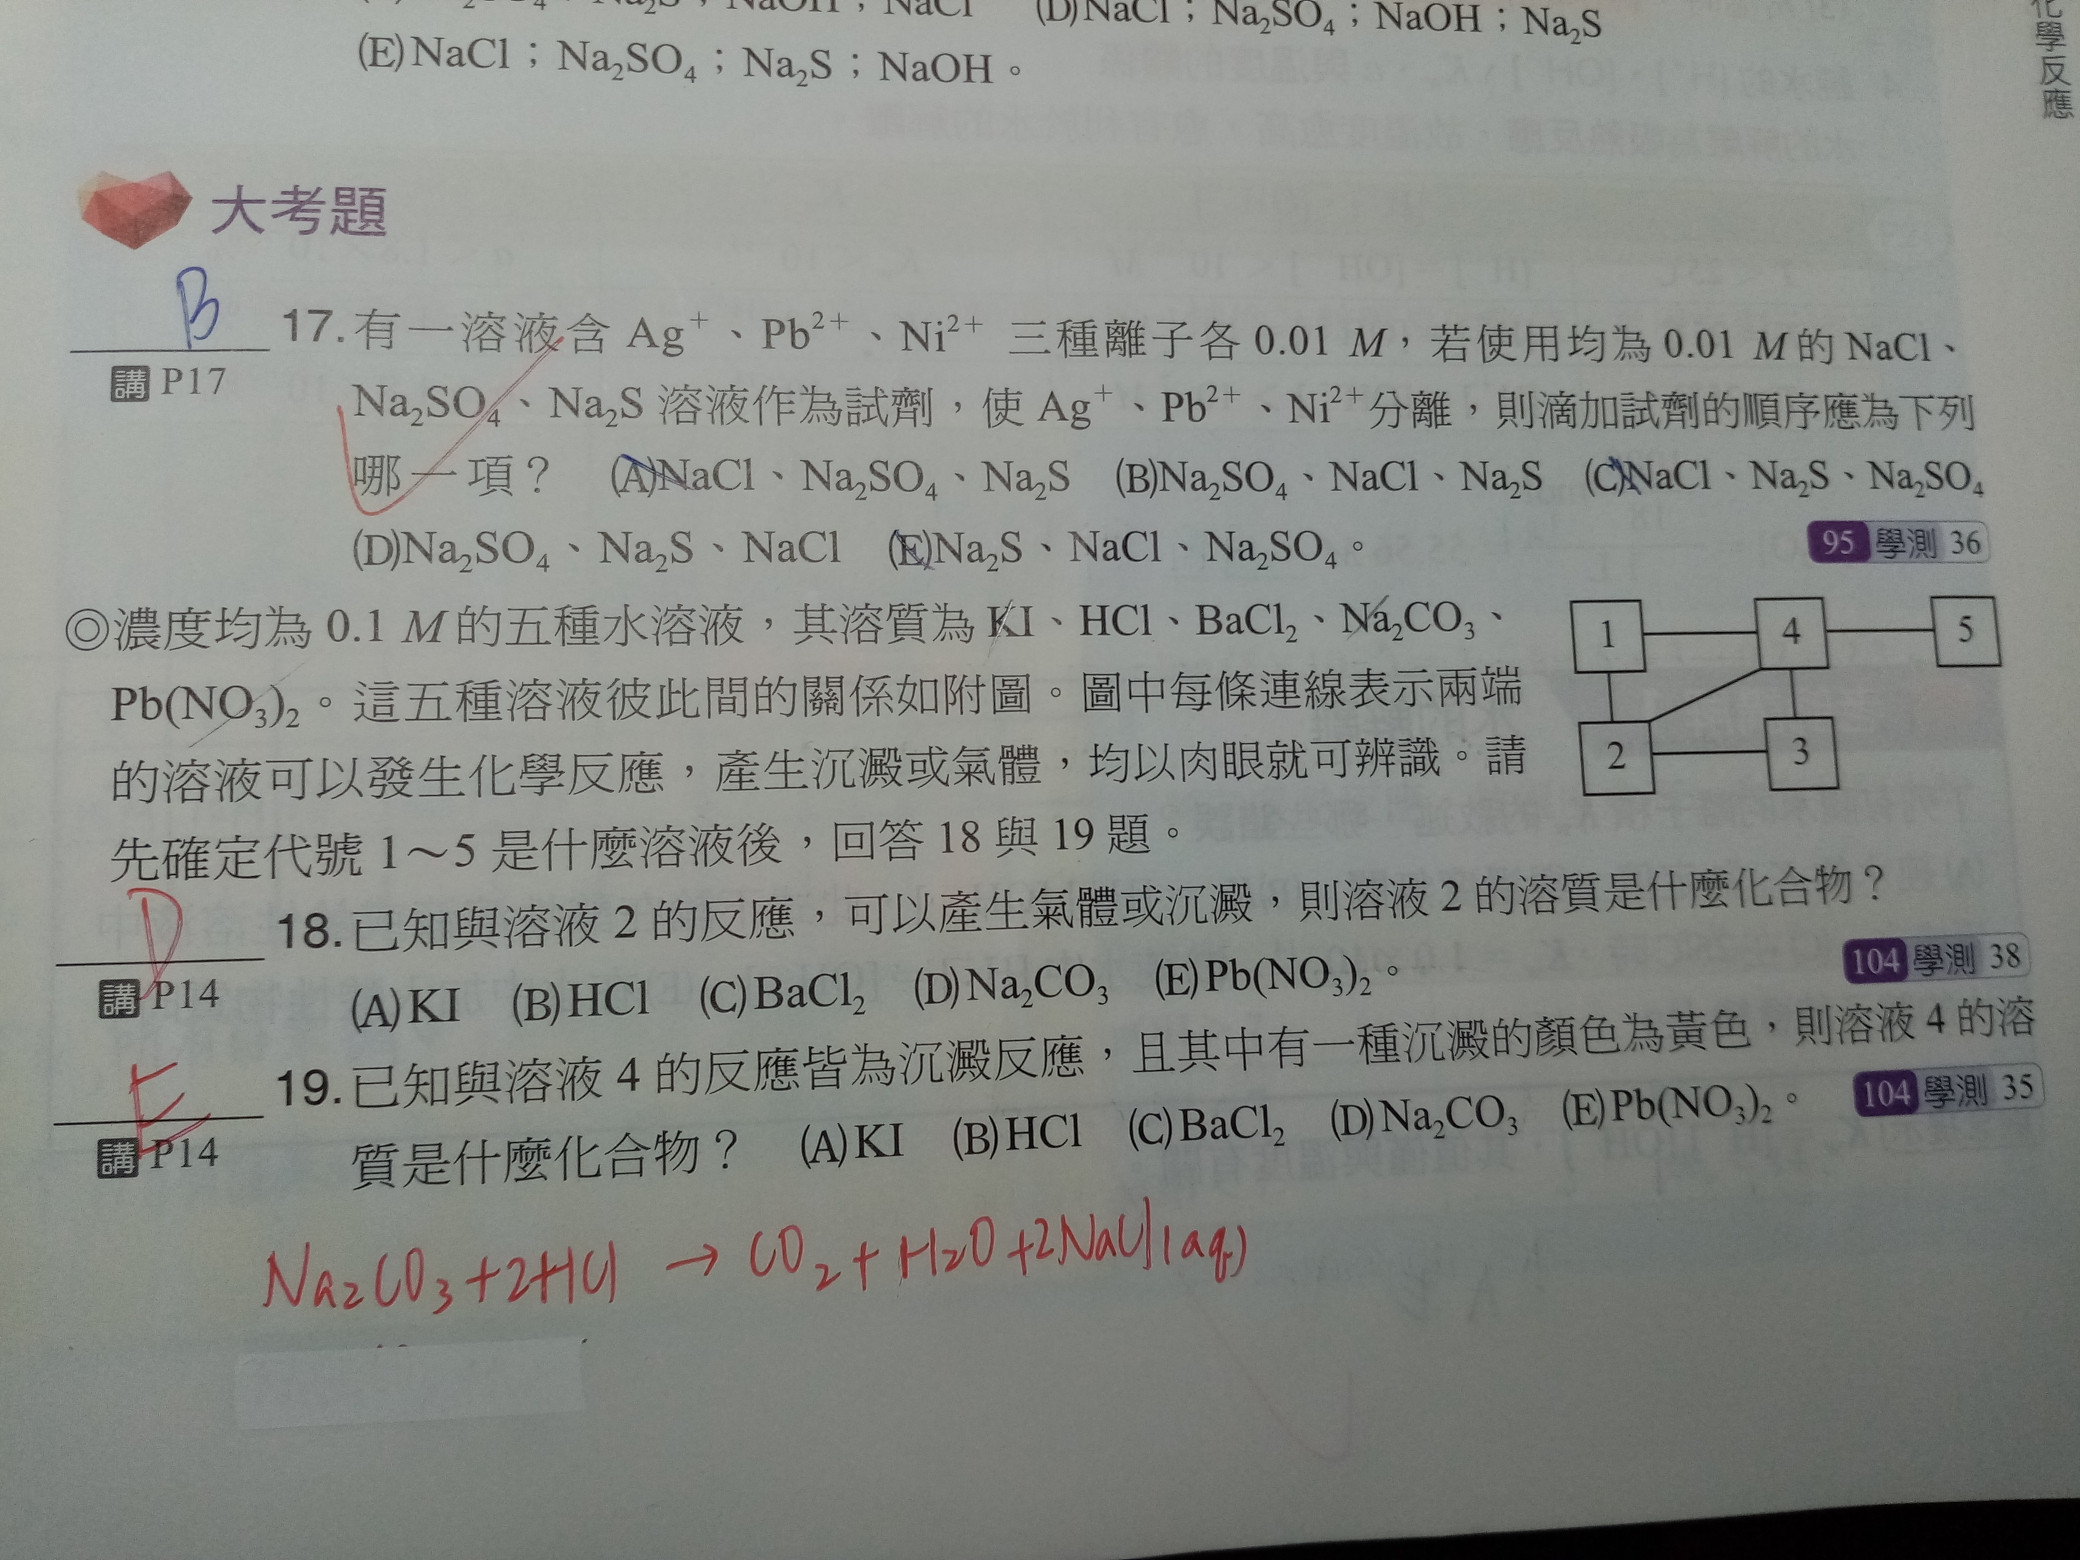 Na₂S，NaOH，NaCl (D)NaCl；Na₂SO₄；NaOH；Na₂S
(E)NaCl；Na₂SO₄；Na₂S；NaOH。
化學反應
大考題
B
17.有一溶液含 Ag⁺、Pb²⁺、Ni²⁺ 三種離子各 0.01 M，若使用均為 0.01 M 的 NaCl、
講 P17
Na₂SO₄、Na₂S 溶液作為試劑，使 Ag⁺、Pb²⁺、Ni²⁺分離，則滴加試劑的順序應為下列
哪一項？ (A)NaCl、Na₂SO₄、Na₂S (B)Na₂SO₄、NaCl、Na₂S (C)NaCl、Na₂S、Na₂SO₄
(D)Na₂SO₄、Na₂S、NaCl (E)Na₂S、NaCl、Na₂SO₄。 95 學測 36
◎濃度均為 0.1 M 的五種水溶液，其溶質為 KI、HCl、BaCl₂、Na₂CO₃、
Pb(NO₃)₂。這五種溶液彼此間的關係如附圖。圖中每條連線表示兩端
的溶液可以發生化學反應，產生沉澱或氣體，均以肉眼就可辨識。請
先確定代號 1～5 是什麼溶液後，回答 18 與 19 題。
1 4 5
2 3
D
18.已知與溶液 2 的反應，可以產生氣體或沉澱，則溶液 2 的溶質是什麼化合物？
講 P14
(A)KI (B)HCl (C)BaCl₂ (D)Na₂CO₃ (E)Pb(NO₃)₂。 104 學測 38
E
19.已知與溶液 4 的反應皆為沉澱反應，且其中有一種沉澱的顏色為黃色，則溶液 4 的溶
講 P14
質是什麼化合物？ (A)KI (B)HCl (C)BaCl₂ (D)Na₂CO₃ (E)Pb(NO₃)₂。 104 學測 35
Na₂CO₃+2HCl → CO₂+H₂O+2NaCl(aq)